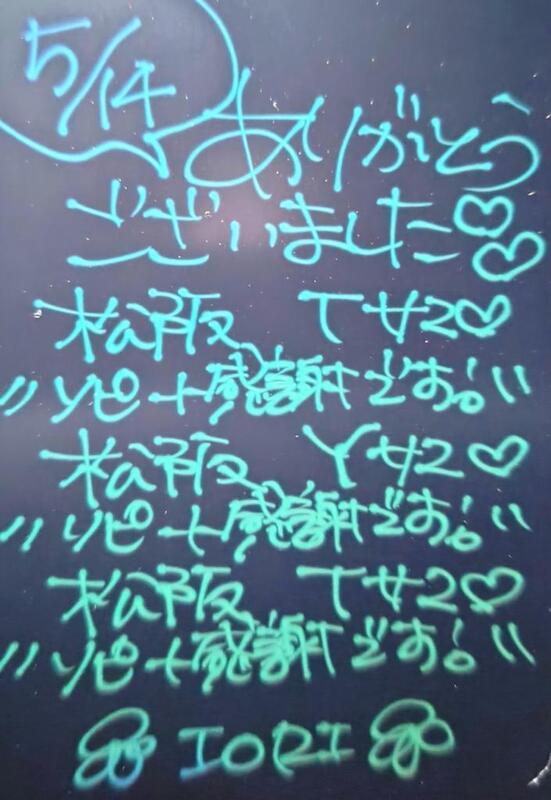 5/14
ありがとう
ございました♡♡
松阪 Tサ2♡
〃リピート感謝です!〃
松阪 Yサ2♡
〃リピート感謝です!〃
松阪 Tサ2♡
〃リピート感謝です!〃
IORI